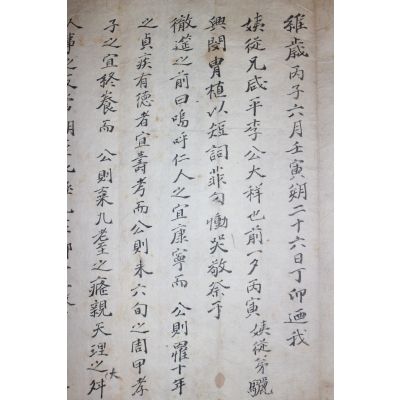 維歲丙子六月壬寅朔二十六日丁卯迺我
姨從兄咸平李公大祥也前一夕丙寅 姨從弟驪
興閔胄植以短詞菲勻慟哭敬祭于
徹筵之前曰嗚呼仁人之宜康寧而 公則罹十年
之貞疾有德者宜壽考而公則未六旬之周甲孝
子之宜終養而 公則棄九耋之癃親天理之舛